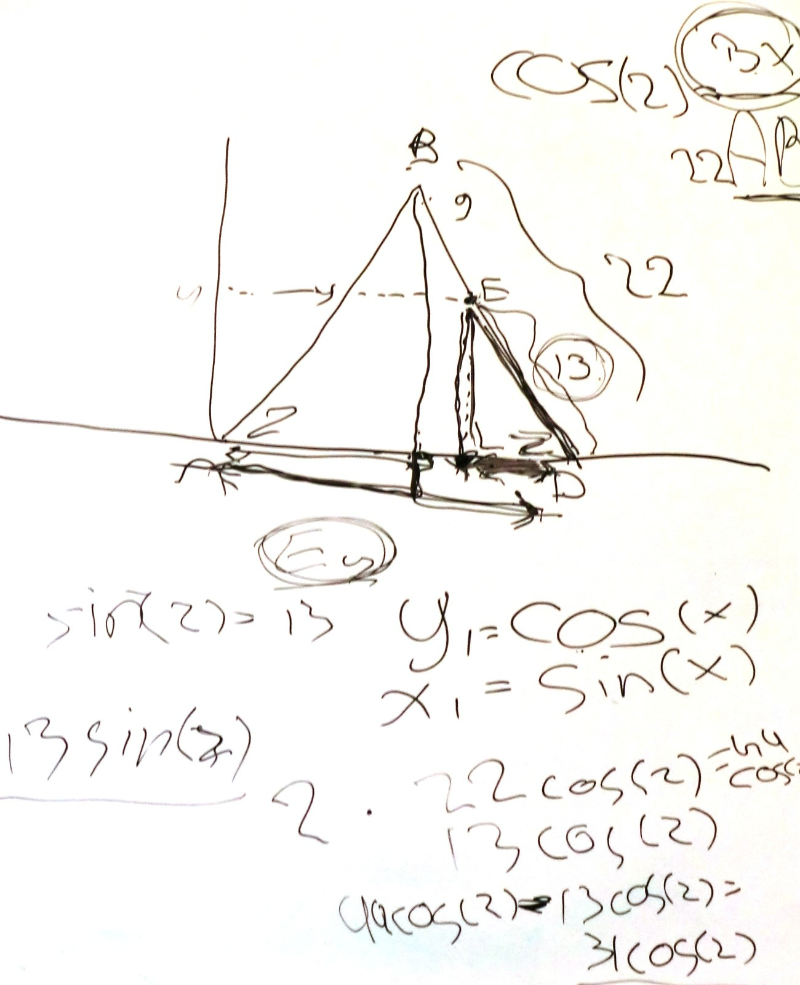 cos(z) Bx
22 AB
B
9
22
y
E
13
z
z
A
D
Ey
sin(z) = 13
y₁ = cos(x)
x₁ = sin(x)
13 sin(z)
2 · 22 cos(z) = 44 cos
13 cos(z)
44 cos(z) - 13 cos(z) =
31 cos(z)